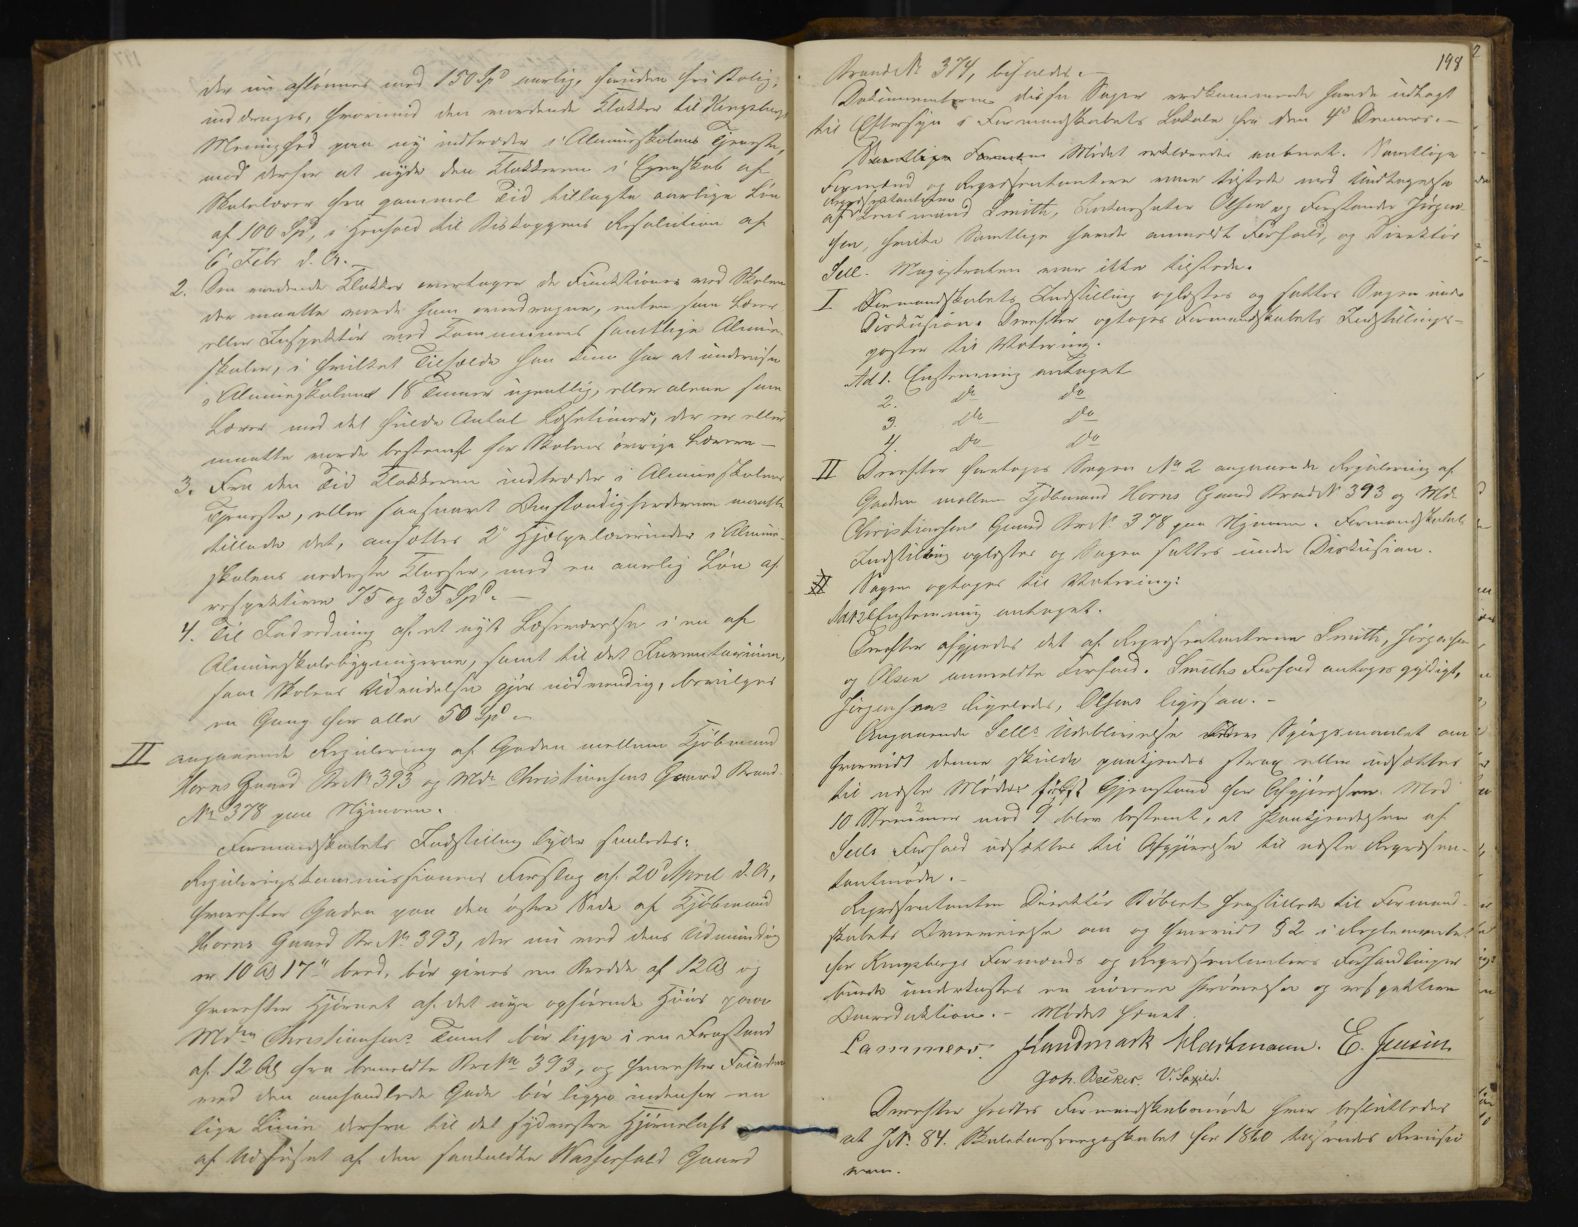 der nu aflønnes med 150 Spd aarlig, foruden fri Bolig,
inddrages, hvorimod den værende Klokker til Kongsbergs
Menighed paa ny indtræder i Almueskolens Tjeneste,
mod derfor at nyde den Klokkeren i Egenskab af
Skolelærer fra gammel Tid tillagte aarlige Løn
af 100 Spd, i Henhold til Biskoppens Resolution af
6 Febr d. A.
2. Den værende Klokker overtager de Funktioner ved Skolen
der maatte vorde ham overdragne, enten som Lærer
eller Inspektør ved Kommunens samtlige Almue-
skoler, i hvilket Tilfælde han kun har at undervise
i Almueskolen 18 Timer ugentlig, eller alene som
Lærer med det fulde Antal Læsetimer, der er eller
maatte vorde bestemt for Skolens øvrige Lærere —
3. Fra den Tid Klokkeren indtræder i Almueskolens
Tjeneste, eller saasnart Omstændighederne maatte
tillade det, ansættes 2 Hjælpelærerinder i Almue-
skolens nederste Klasser, med en aarlig Løn af
respektive 75 og 35 Spd.
4. Til Indredning af et nyt Læseværelse i en af
Almueskolebygningerne, samt til det Inventarium,
som Skolens Udvidelse gjør nødvendig, bevilges
en Gang for alle 50 Spd
II angaaende Regulering af Gaden mellem Kjøbmand
Horns Gaard Br No 393 og Md Christiansens Gaard Brand-
No 378 paa Nymoen.
Formandskabets Indstilling lyder saaledes:
Reguleringskommissionens Forslag af 20 April d. A.,
hvorefter Gaden paa den østre Side af Kjøbmand
Horns Gaard Br No 393, der nu ved dens Udmunding
er 10 Al 17" bred, bør gives en Bredde af 12 Al og
hvorefter Hjørnet af det nye opførende Huus paa
Mdm Christiansens Tomt bør ligge i en Frastand
af 12 Al fra bemeldte Br No 393, og hvorefter
med den omhandlede Gade bør ligge indenfor en
lige Linie derfra til det sydvestre Hjørne
af Udhuset af den saakaldte Wasserfald Gaard
198
Brand No 374, bifaldes.
Dokumenterne disse Sager vedkommende havde udlagt
til Eftersyn i Formandskabets Lokale fra den 4 Dennes.
Mødet erklæredes aabnet. Samtlige
Formænd og Repræsentantere vare tilstede med Undtagelse
af Repræsentanterne Lensmand Smith, Olsen og Forstander Jørgen-
sen, hvilke Samtlige havde anmeldt Forfald, og Direktør
Sell. Magistraten var ikke tilstede.
I Formandskabets Indstilling oplæstes og sattes Sagen under
Diskusion. Derefter optoges Formandskabets Indstillings-
poster til Votering.
Ad 1. Enstemmig antaget
2. do do
3. do do
4. do do
II Derefter foretoges Sagen No 2 angaaende Regulering af
Gaden mellem Kjøbmand Horns Gaard Brand No 393 og Md
Christiansens Gaard Br No 378 paa Nymoen. Formandskabets
Indstilling oplæstes og Sagen sattes under Diskusion.
Sagen optoges til Votering:
Enstemmig antaget.
Derefter afgjordes det af Repræsentanterne Smith, Jørgensen
og Olsen anmeldte Forfald. Smiths Forfald antoges gyldigt,
Jørgensens ligeledes, Olsens ligesaa.
Angaaende Sells Udeblivelse Spørgsmaalet om
hvorvidt denne skulde paakjendes strax eller udsættes
til næste Møde Gjenstand for Afgjørelse. Med
10 Stemmer mod 9 blev bestemt, at Paakjendelsen af
Sells Forfald udsættes til Afgjørelse til næste Repræsen-
tantmøde.
Repræsentanten Direktør Bøbert henstillede til Formand-
skabets Overveielse om og hvorvidt § 2 i Reglementet
for Kongsbergs Formænds og Repræsentanters Forhandlinger
burde underkastes en nøiere Prøvelse og respektive
Omredaktion. Mødet hævet.
Lammers. Handmark Hartmann. E. Jensen
Joh. Becker. V. Saxild.
Derefter holdtes Formandskabsmøde hvor besluttedes
at J No 84. Skoletavs regnskabet for 1860